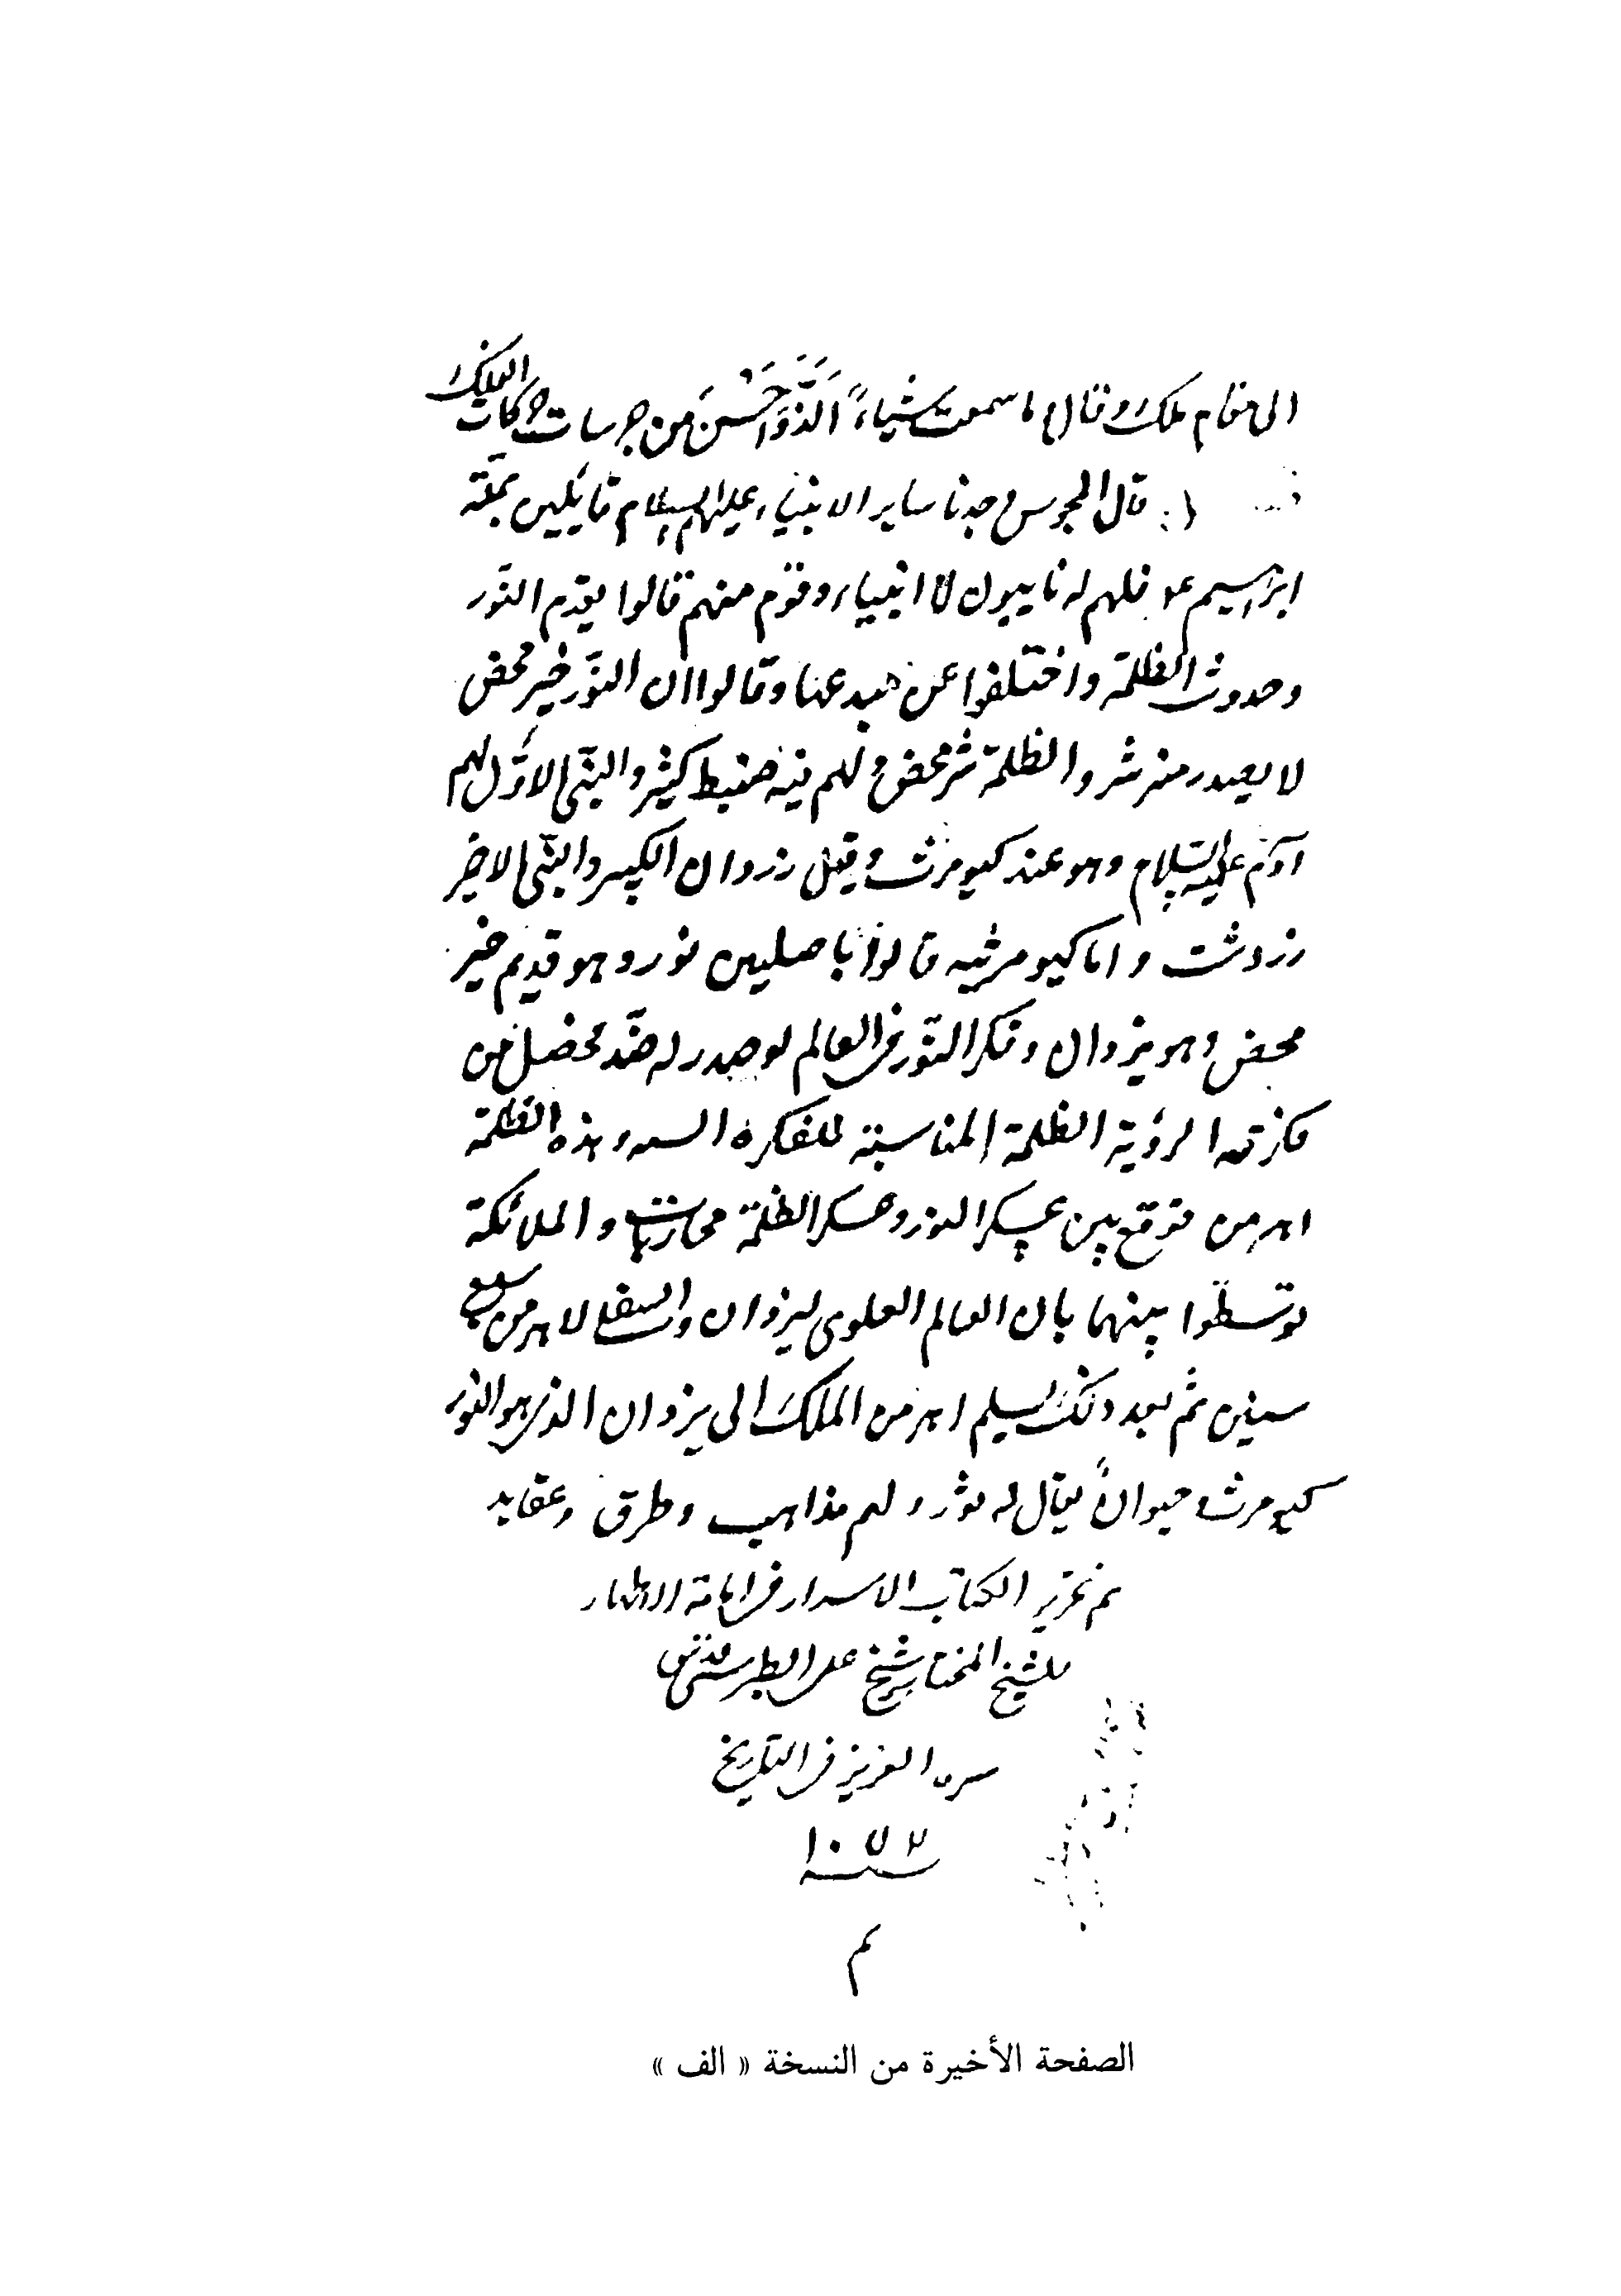 الى مقام ملك وقال ما سمعت شياءً الذّ وَاَحْسَنَ من جرسات حركات الفلك
قال المجوس وجدنا ساير الانبياء عليهم السلام قايلين بملّة
ابراهيم ع فلهم له نايبون لا انبياء وقوم منهم قالوا بقدم النّور
وحدوث الظلمة واختلفوا عن مبدعها وقالوا ان النّور خير محض
لا يصدر منه شر والظلمة شر محض ولهم فيه خبط كثير والنبّى الاوّل لهم
آدم عليه السّلام وهو عند كيومرث وقيل زروان الكبير والنبّى الاخر
زردشت واما كيومرثيه قالوا باصلين نور وهو قديم خير
محض وهو يزدان وفكر النّور فى العالم لو صدر له ضدّ فحصل من
الروية الظلمة المناسبة للفكرة السوء وهذه الظلمة
اهرمن فوقع بين عسكر النور وعسكر الظلمة محاربات والملائكة
توسّطوا بينهما بان العالم العلوى ليزدان والسفلى لاهرمن سبع
سنين ثم بعد ذلك يسلم اهرمن الملك الى يزدان الذى هو النور
كيومرث وحيواناً يقال له ثور ولهم مذاهب وطرق وعقايد
تم تحرير الكتاب الاسرار فى امامة الاطهار
للشيخ المختار شيخ على الطبرسى قدس
سره العزيز فى التاريخ
سنة ١٠٧٢
م
الصفحة الأخيرة من النسخة « الف »